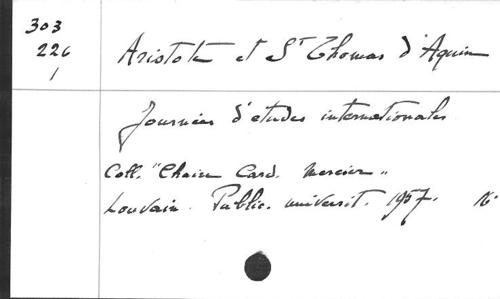 303
226
1
Aristote et St Thomas d'Aquin
Journées d'études internationales
Coll. "Chaire Card. Mercier"
Louvain. Public. universit. 1957. 16°